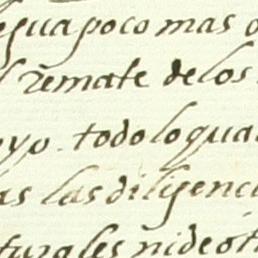 legua poco mas o
l remate de los
oyo. todo lo qual
as las diligenci
turales ni de ot